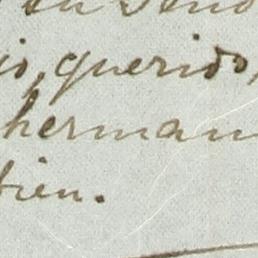 su
io, querido,
herman
bien.